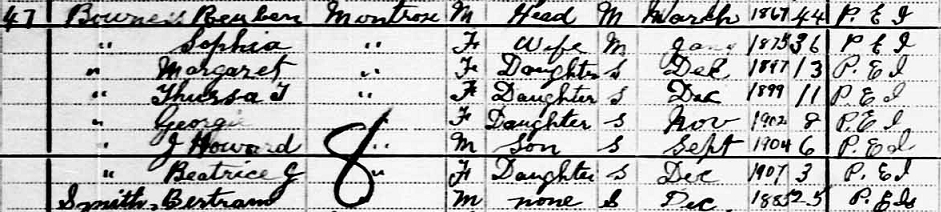 47 Bowness Reuben Montrose M Head M March 1867 44 P. E I
" Sophia " F Wife M Jan 1875 36 P E I
" Margaret " F Daughter S Dec 1897 13 P. E I
" Thursa T " F Daughter S Dec 1899 11 P. E I
" Georgie " F Daughter S Nov 1902 8 P. E I
" J Howard " M Son S Sept 1904 6 P. E I
" Beatrice G " F Daughter S Dec 1907 3 P. E I
Smith, Bertram M none S Dec 1885 25 P. E I
8